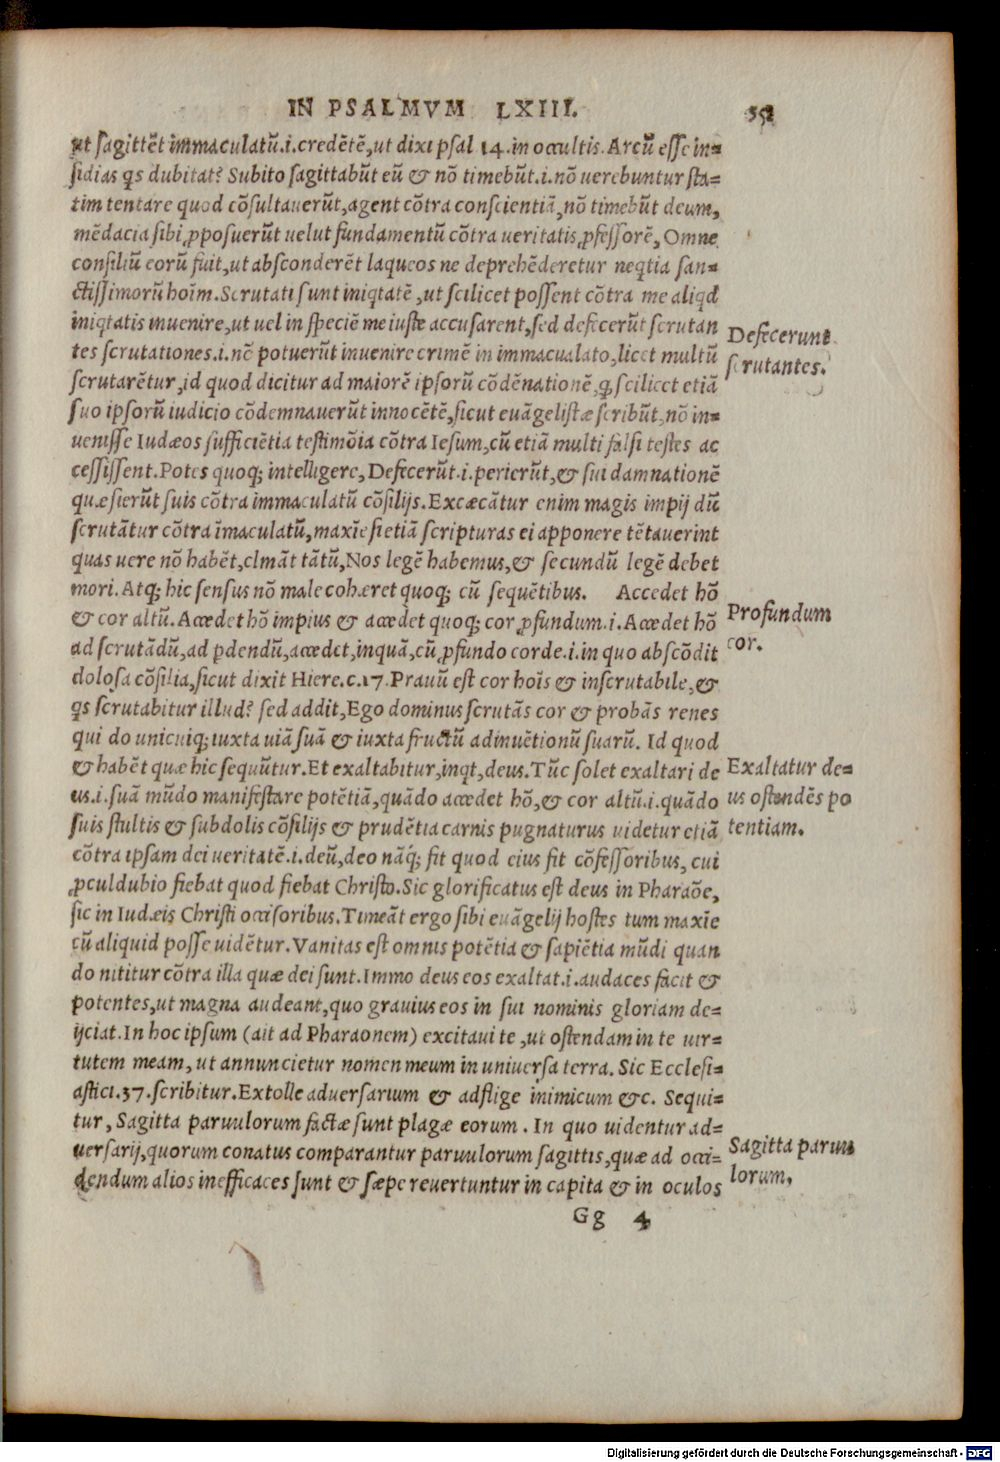 IN PSALMVM LXIII.
ut sagittēt immaculatū.i.credētē,ut dixi psal 14.in occultis.Arcū esse in=
sidias qs dubitat? Subito sagittabūt eū & nō timebūt.i.nō uerebuntur sta=
tim tentare quod cōsultauerūt,agent cōtra conscientiā,nō timebūt deum,
mēdacia sibi ꝓposuerūt uelut fundamentū cōtra ueritatis ꝓfessorē, Omne
consiliū eorū fuit,ut absconderēt laqueos ne deprehēderetur neqtia san=
ctissimorū hoīm.Scrutati sunt iniqtatē ,ut scilicet possent cōtra me aliqd
iniqtatis inuenire,ut uel in speciē me iuste accusarent,sed defecerūt scrutan
tes scrutationes.i.nē potuerūt inuenire crimē in immacualato,licet multū
scrutarētur,id quod dicitur ad maiorē ipsorū cōdēnationē,ꝙ scilicet etiā
suo ipsorū iudicio cōdemnauerūt innocētē,sicut euāgelistæ scribūt,nō in=
uenisse Iudæos sufficiētia testimōia cōtra Iesum,cū etiā multi falsi testes ac
cessissent.Potes quoqꝫ intelligere, Defecerūt.i.perierūt,& sui damnationē
quæsierūt suis cōtra immaculatū cōsilijs.Excæcātur enim magis impij dū
scrutātur cōtra īmaculatū,maxīe si etiā scripturas ei apponere tētauerint
quas uere nō habēt,clmāt tātū,Nos legē habemus,& secundū legē debet
mori.Atqꝫ hic sensus nō male cohæret quoqꝫ cū sequētibus. Accedet hō
& cor altū.Accedet hō impius & accedet quoqꝫ cor ꝓfundum.i.Accedet hō
ad scrutādū,ad ꝑdendū,accedet,inquā,cū ꝓfundo corde.i.in quo abscōdit
dolosa cōsilia,sicut dixit Hiere.c.17.Prauū est cor hoīs & inscrutabile,&
qs scrutabitur illud? sed addit,Ego dominus scrutās cor & probās renes
qui do unicuiqꝫ iuxta uiā suā & iuxta fructū adinuētionū suarū. Id quod
& habēt quæ hic sequūtur.Et exaltabitur,inqt,deus.Tūc solet exaltari de
us.i.suā mūdo manifestare potētiā,quādo accedet hō,& cor altū.i.quādo
suis stultis & subdolis cōsilijs & prudētia carnis pugnaturus uidetur etiā
cōtra ipsam dei ueritatē.i.deū,deo nāqꝫ fit quod eius fit cōfessoribus, cui
ꝓculdubio fiebat quod fiebat Christo.Sic glorificatus est deus in Pharaōe,
sic in Iudæis Christi occisoribus.Timeāt ergo sibi euāgelij hostes tum maxīe
cū aliquid posse uidētur.Vanitas est omnis potētia & sapiētia mūdi quan
do nititur cōtra illa quæ dei sunt.Immo deus eos exaltat.i.audaces facit &
potentes,ut magna audeant,quo grauius eos in sui nominis gloriam de=
ijciat.In hoc ipsum (ait ad Pharaonem) excitaui te ,ut ostendam in te uir=
tutem meam, ut annuncietur nomen meum in uniuersa terra. Sic Ecclesi=
astici.37.scribitur.Extolle aduersarium & adflige inimicum &c. Sequi=
tur, Sagitta paruulorum factæ sunt plagæ eorum . In quo uidentur ad=
uersarij,quorum conatus comparantur paruulorum sagittis,quæ ad occi=
dendum alios inefficaces sunt & sæpe reuertuntur in capita & in oculos
Gg 4
Defecerunt
scrutantes.
Profundum
cor.
Exaltatur de=
us ostendēs po
tentiam.
Sagitta paruu
lorum.
Digitalisierung gefördert durch die Deutsche Forschungsgemeinschaft - DFG